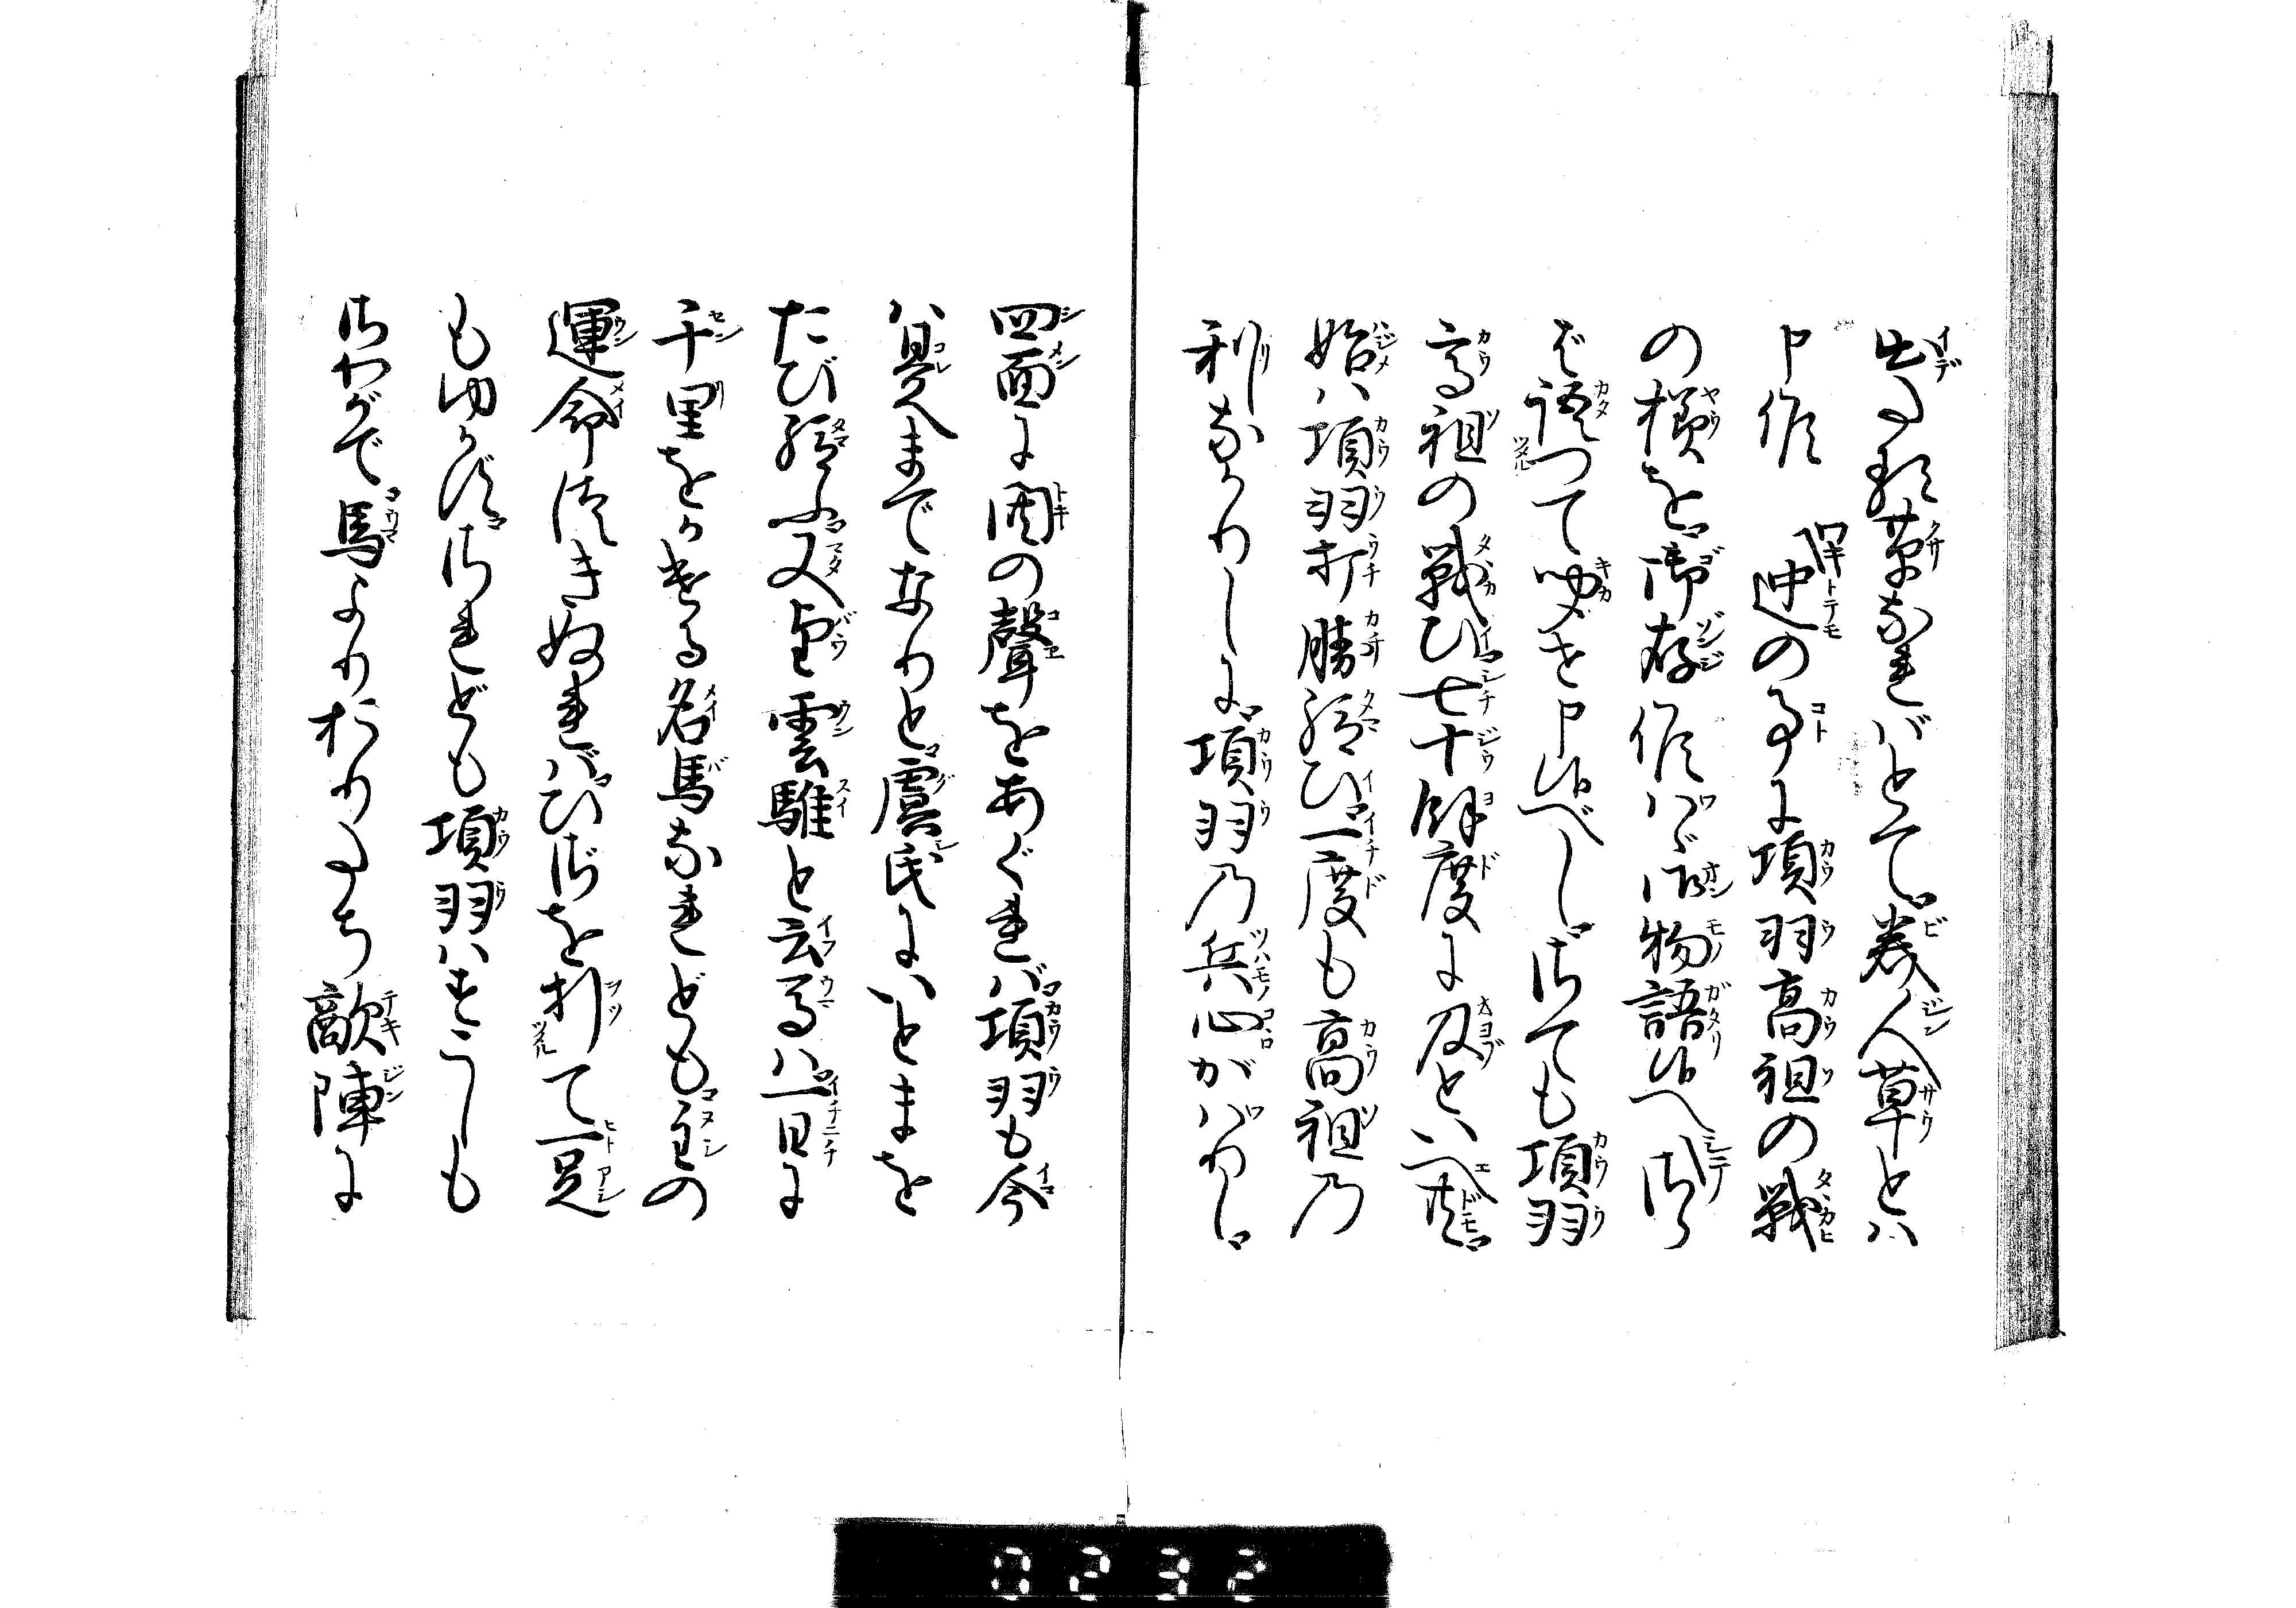 出たる草なればとて美人草とハ
申候 ワキ 迚の事に項羽高祖の戦
の様を御存候ハゞ御物語候へ シテ さら
ば語つて聞せ申候べしさても項羽
高祖の戦ひ七十餘度に及といへ共
始ハ項羽打勝給ひ一度も高祖乃
利なかりしに項羽乃兵心がハりし
四面に鬨の聲をあぐれバ項羽も今
ハ是までなりと虞氏にいとまを
たび給ふ又望雲騅と云馬ハ一日に
千里をかける名馬なれども主の
運命つきぬれバひざを折て一足
もゆかずされども項羽ハすこしも
さわがで馬よりおりたち敵陣に
0232